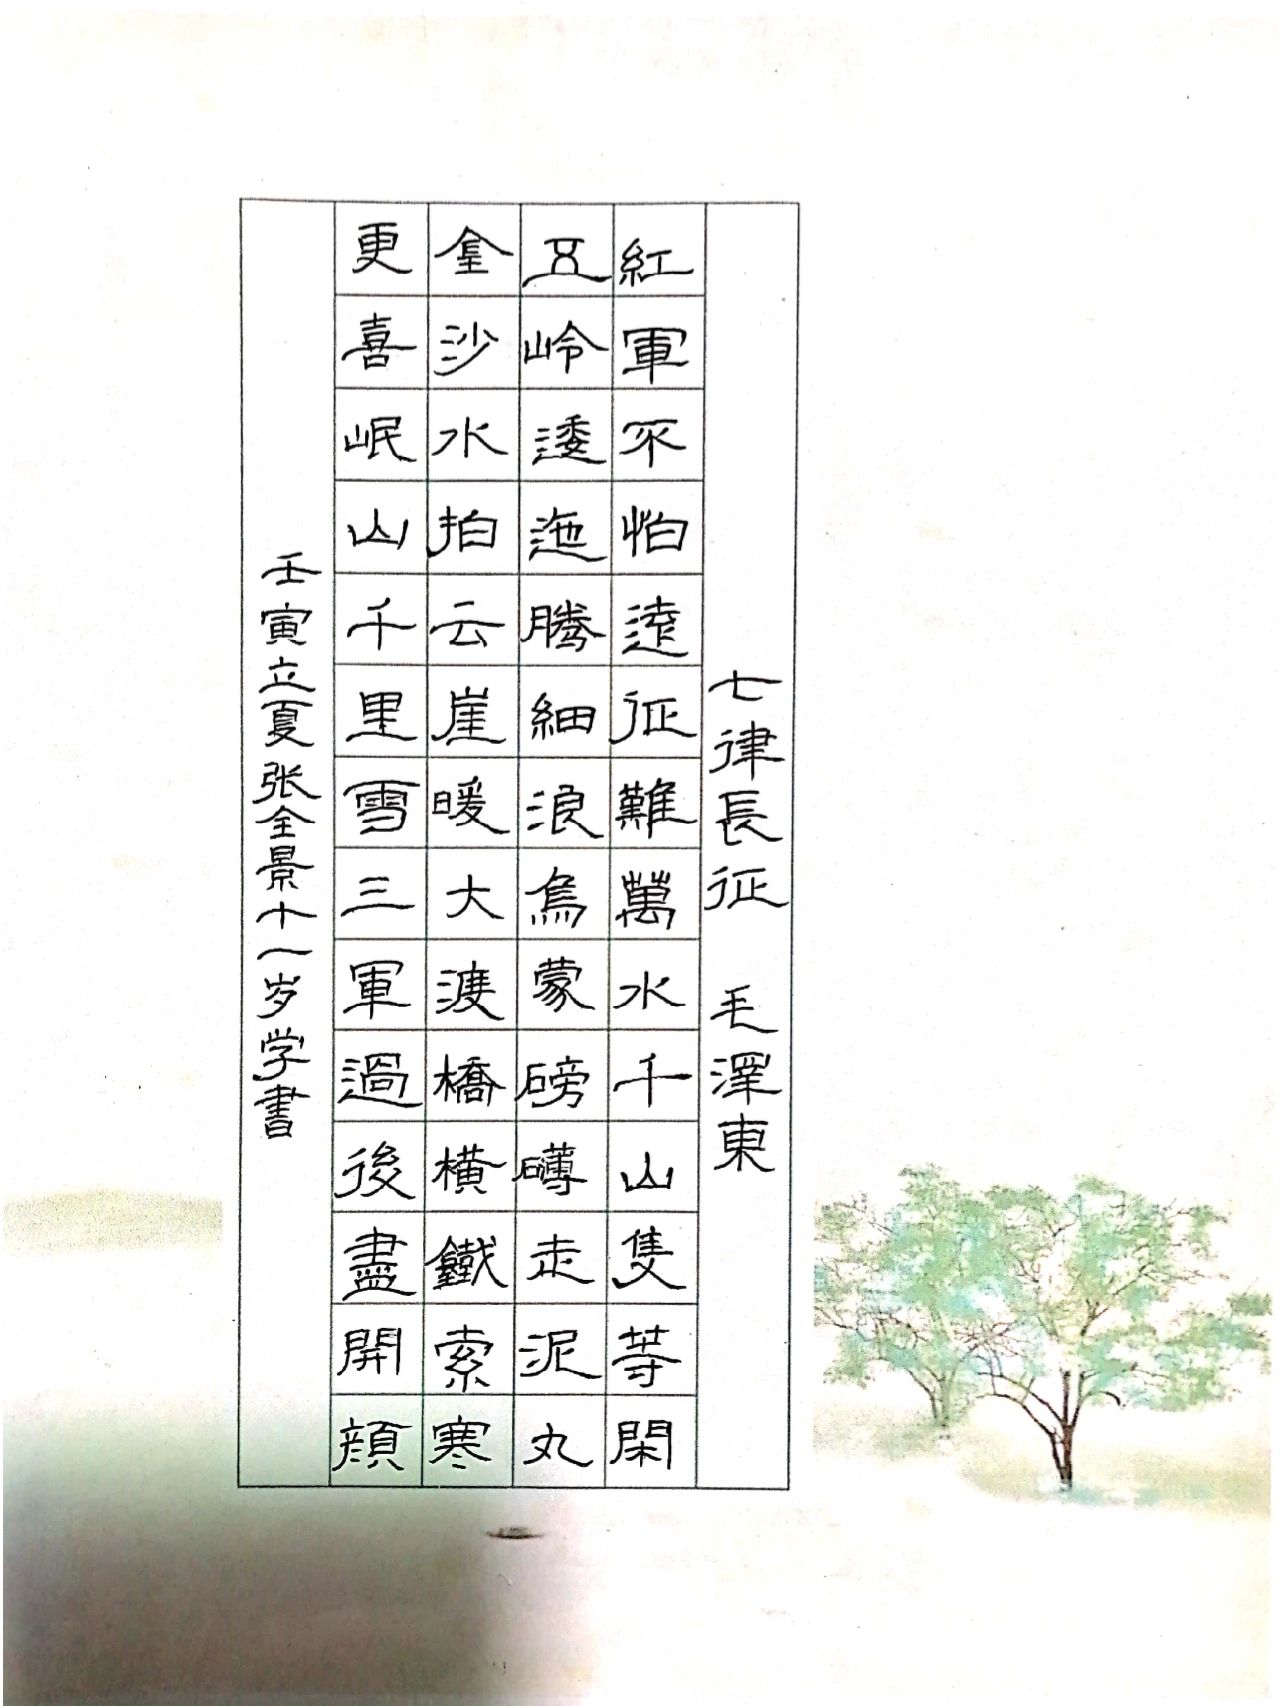 七律長征 毛澤東
紅軍不怕遠征難萬水千山隻等閑
五岭逶迤腾細浪烏蒙磅礴走泥丸
金沙水拍云崖暖大渡橋横鐵索寒
更喜岷山千里雪三軍過後盡開顔
壬寅立夏张全景十一岁学書